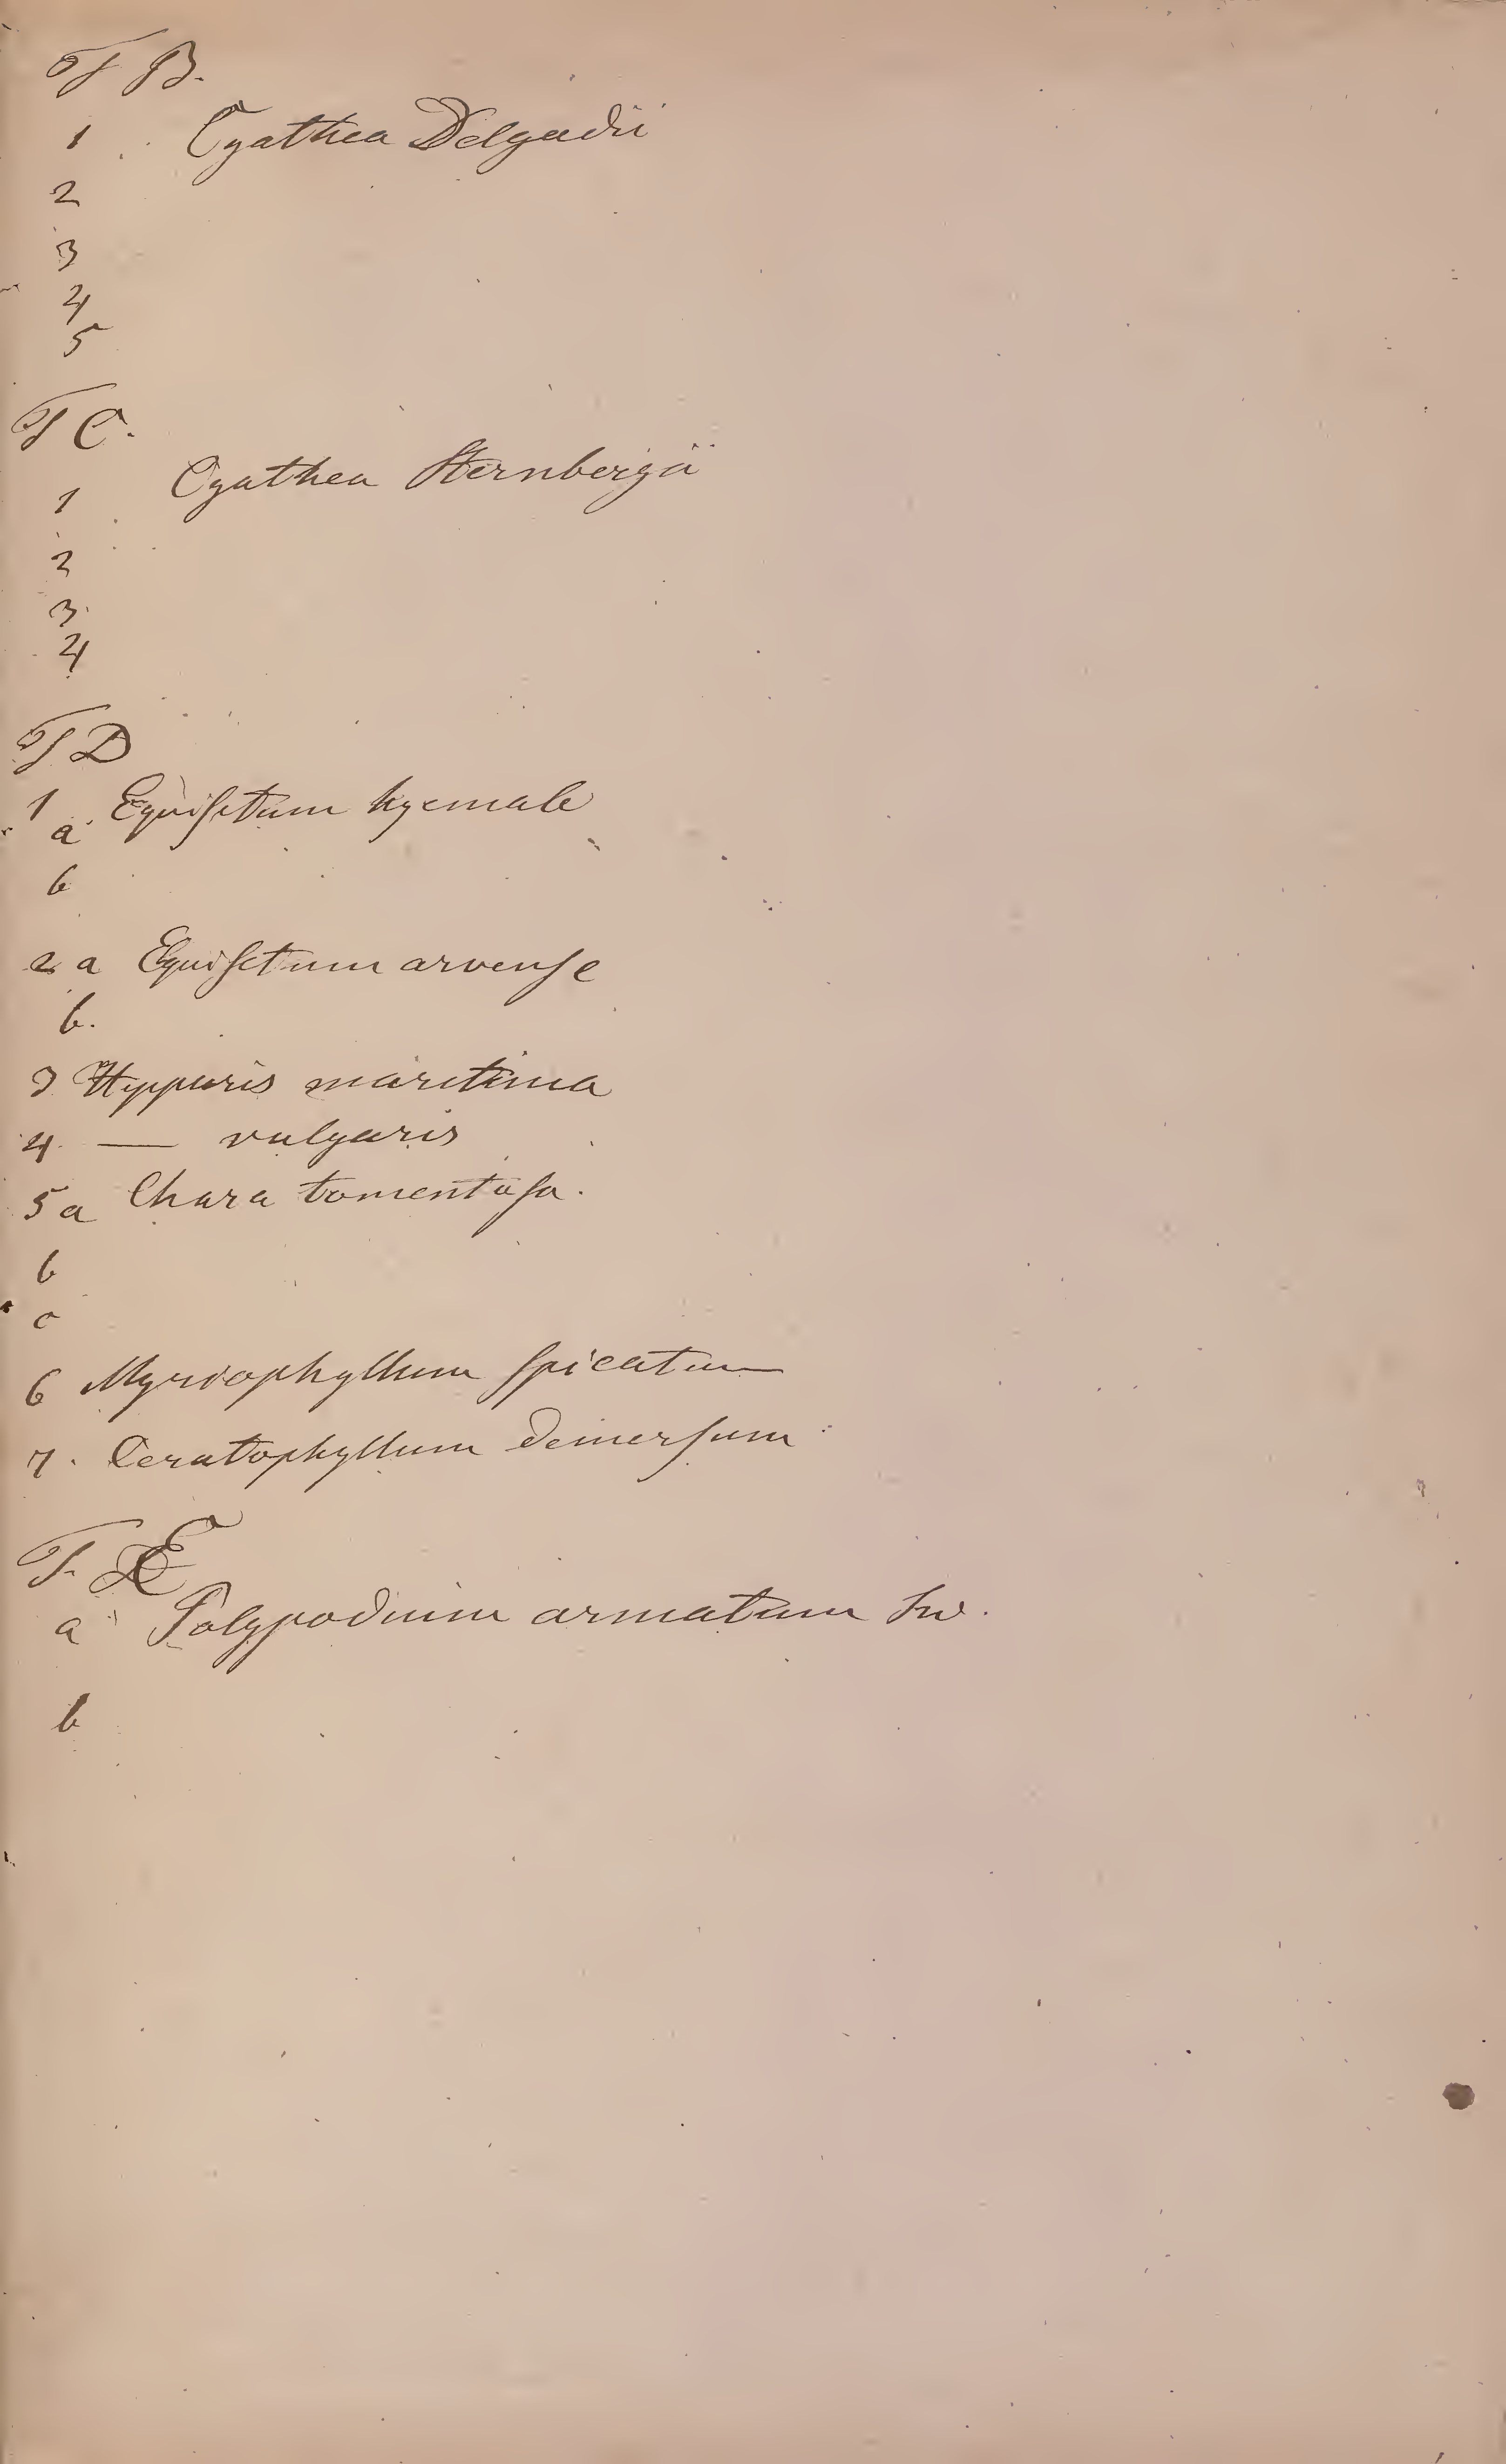 T B.
1 Cyathea Delgadii
2
3
4
5
T C.
1 Cyathea Sternbergii
2
3.
4
T D
1 a. Equiſetum hyemale
b
2 a Equiſetum arvenſe
b.
3 Hyppuris maritima
4. — vulgaris
5 a Chara tomentoſa.
b
c
6 Myriophyllum ſpicatum
7. Ceratophyllum demerſum
T. E
a Polypodium armatum Sw.
b